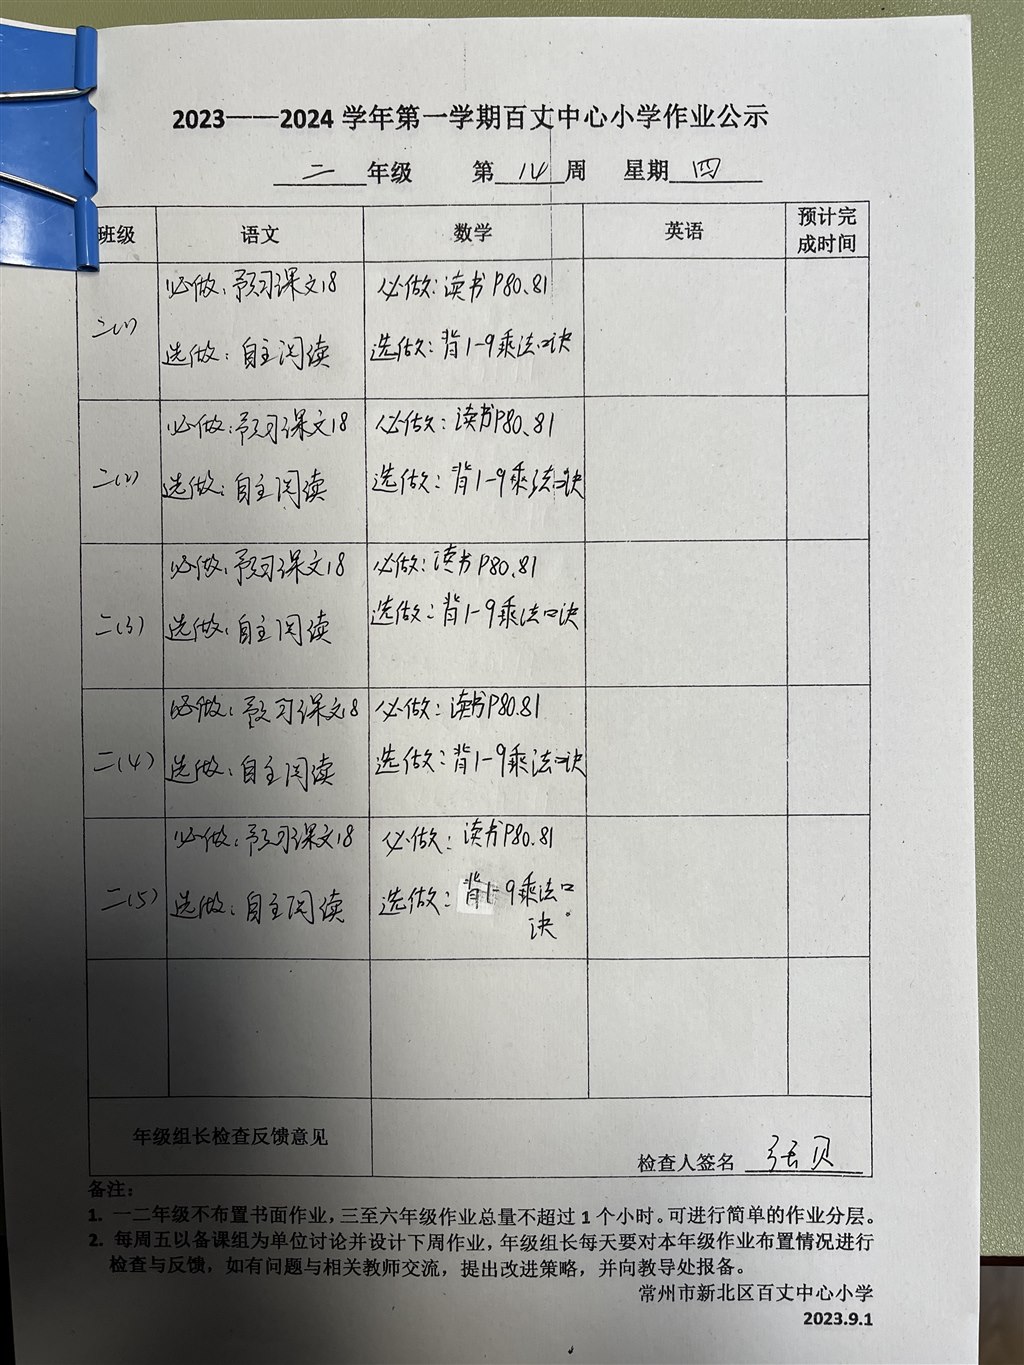 2023——2024 学年第一学期百丈中心小学作业公示
二 年级 第 14 周 星期 四
班级 语文 数学 英语 预计完成时间
二(1)
必做：预习课文18
选做：自主阅读
必做：读书P80、81
选做：背1-9乘法口诀
二(2)
必做：预习课文18
选做：自主阅读
必做：读书P80、81
选做：背1-9乘法口诀
二(3)
必做：预习课文18
选做：自主阅读
必做：读书P80、81
选做：背1-9乘法口诀
二(4)
必做：预习课文18
选做：自主阅读
必做：读书P80.81
选做：背1-9乘法口诀
二(5)
必做：预习课文18
选做：自主阅读
必做：读书P80.81
选做：背1-9乘法口
诀。
年级组长检查反馈意见
检查人签名 张贝
备注：
1. 一二年级不布置书面作业，三至六年级作业总量不超过 1 个小时。可进行简单的作业分层。
2. 每周五以备课组为单位讨论并设计下周作业，年级组长每天要对本年级作业布置情况进行
检查与反馈，如有问题与相关教师交流，提出改进策略，并向教导处报备。
常州市新北区百丈中心小学
2023.9.1